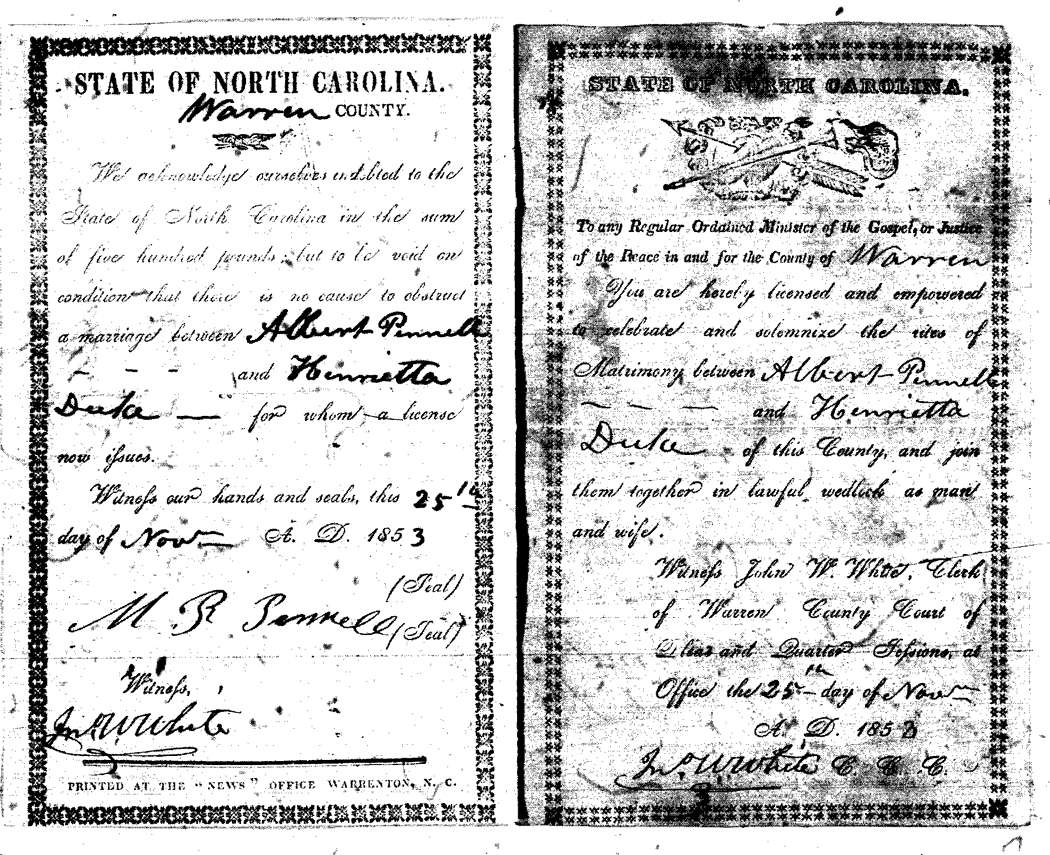 STATE OF NORTH CAROLINA.
Warren COUNTY.
We acknowledge ourselves indebted to the
State of North Carolina in the sum
of five hundred pounds; but to be void on
condition that there is no cause to obstruct
a marriage between Albert Pennell
— — — and Henrietta
Duke — for whom a license
now issues.
Witness our hands and seals, this 25th
day of Nov A. D. 1853
(Seal)
M R Pennell (Seal)
Witness,
Jno. W. White
PRINTED AT THE "NEWS" OFFICE WARRENTON, N. C.
STATE OF NORTH CAROLINA.
To any Regular Ordained Minister of the Gospel, or Justice
of the Peace in and for the County of Warren
You are hereby licensed and empowered
to celebrate and solemnize the rites of
Matrimony between Albert Pennell
— — — and Henrietta
Duke of this County, and join
them together in lawful wedlock as man
and wife.
Witness John W. White, Clerk
of Warren County Court of
Pleas and Quarter Sessions, at
Office the 25th day of Nov
A. D. 1853
Jno. W. White C. C. C.